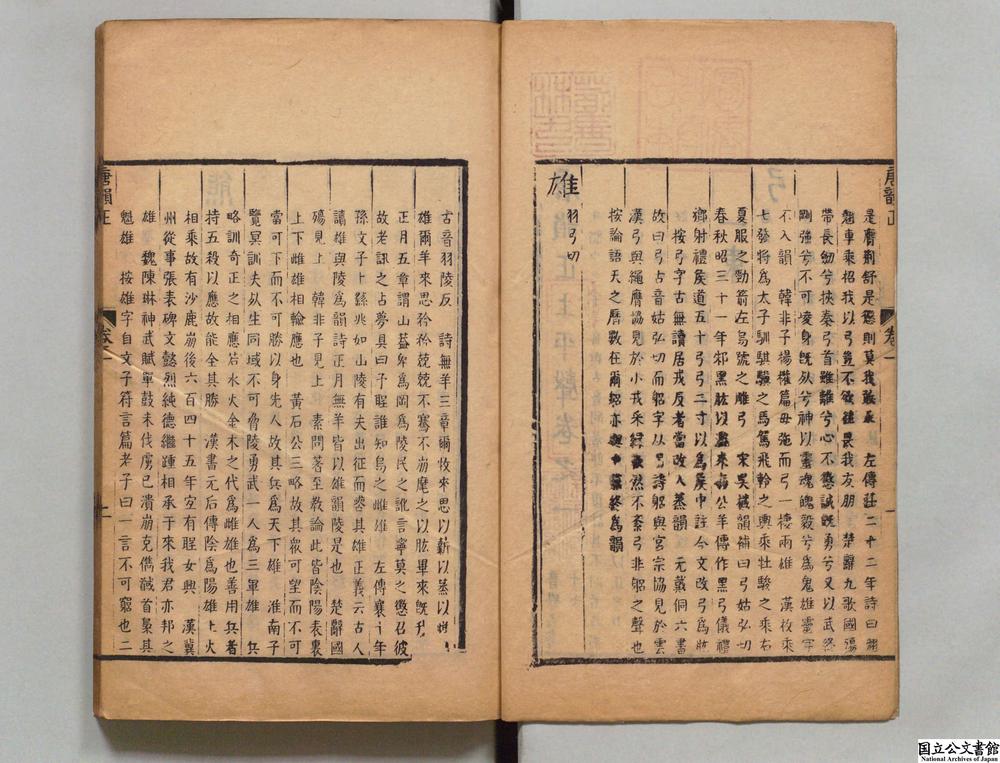 唐韻正
卷一
是膺荆舒是懲則莫我敢承 左傳莊二十二年詩曰翹
翹車乘招我以弓豈不欲往畏我友朋 楚辭九歌國殤
帶長劒兮挾秦弓首雖離兮心不懲誠旣勇兮又以武終
剛強兮不可凌身旣死兮神以靈魂魄毅兮爲鬼雄靈字
不入韻 韓非子揚權篇毋弛而弓一棲兩雄 漢枚乘
七發將爲太子馴騏驥之馬駕飛軨之輿乘牡駿之乘右
夏服之勁箭左烏號之雕弓 宋吳棫韻補曰弓姑弘切
春秋昭三十一年邾黑肱以濫來奔公羊傳作黑弓儀禮
鄉射禮矦道五十弓弓二寸以爲矦中註今文改弓爲肱
按弓字古無讀居戎反者當改入蒸韻 元戴侗六書
故曰弓古音姑弘切而躳字从弓詩躳與宮宗協見於雲
漢弓與繩膺協見於小戎采綠截然不紊弓非躳之聲也
按論語天之曆數在爾躳亦與中窮終爲韻
雄
羽弓切
古音羽陵反 詩無羊三章爾牧來思以薪以蒸以雌以
雄爾羊來思矜矜兢兢不騫不崩麾之以肱畢來旣升
正月五章謂山蓋卑爲岡爲陵民之訛言寧莫之懲召彼
故老訊之占夢具曰予聖誰知烏之雌雄 左傳襄十年
孫文子卜繇兆如山陵有夫出征而喪其雄正義云古人
讀雄與陵爲韻詩正月無羊皆以雄韻陵是也 楚辭國
殤見上 韓非子見上 素問著至教論此皆陰陽表裏
上下雌雄相輸應也 黃石公三略故其衆可望而不可
當可下而不可勝以身先人故其兵爲天下雄 淮南子
覽冥訓夫死生同域不可脅陵勇武一人爲三軍雄 兵
略訓奇正之相應若水火金木之代爲雌雄也善用兵者
持五殺以應故能全其勝 漢書元后傳陰爲陽雄土火
相乘故有沙鹿崩後六百四十五年宜有聖女興 漢冀
州從事張表碑文懿烈純德繼踵相承于來我君亦邦之
雄 魏陳琳神武賦單鼓未伐虜已潰崩克儁馘首梟其
魁雄 按雄字自文子符言篇老子曰一言不可窮也二
唐韻正
卷一
国立公文書館
National Archives of Japan